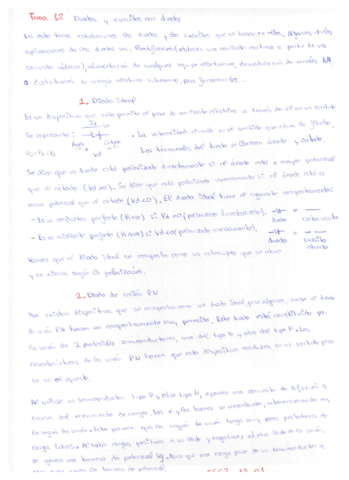 Tema 12 Diodos y circuitos con diodos
En este tema, estudiaremos los diodos y los circuitos que se basan en ellos. Algunas de las
aplicaciones de los diodos son: Rectificación (obtener una corriente continua a partir de una
corriente alterna), alimentación de cualquier equipo electrónico, demodulación de señales AM
o distribución de energía eléctrica submarina, para ferrocarriles...
1. Diodo Ideal
Es un dispositivo que sólo permite el paso de corriente eléctrica a través de él en un sentido
Se representa: Id
La intensidad circula en el sentido que indica la flecha.
Ánodo Cátodo
Vd
Los terminales del diodo se llaman ánodo y cátodo.
Se dice que un diodo está polarizado directamente si el ánodo está a mayor potencial
que el cátodo (Vd>0). Se dice que está polarizado inversamente si el ánodo está a
menor potencial que el cátodo (Vd<0). El diodo ideal tiene el siguiente comportamiento:
- Es un conductor perfecto (R=0) si Vd>0 (polarizado directamente).
diodo = cortocircuito
- Es un aislante perfecto (R=∞) si Vd<0 (polarizado inversamente).
diodo = circuito abierto
Vemos que el Diodo Ideal se comporta como un interruptor que se abre
y se cierra según la polarización.
2. Diodo de unión PN
No existen dispositivos que se comporten como un diodo ideal, pero algunos, como el diodo
de unión PN tienen un comportamiento muy parecido. Este diodo está constituido por
la unión de 2 materiales semiconductores, uno del tipo N y otro del tipo P. Las
características de la unión PN hacen que este dispositivo conduzca en un sentido pero
no en el opuesto.
Al unirse un semiconductor tipo P y otro tipo N, aparece una corriente de difusión a
causa del movimiento de cargas. Los e- y los huecos se recombinan,
la región de unión. Esto provoca que la región de unión tenga muy pocos portadores de
carga libres. Al haber cargas positivas a un lado y negativas al otro lado de la unión,
se genera una barrera de potencial Vγ. Para que una carga pase de un semiconductor a